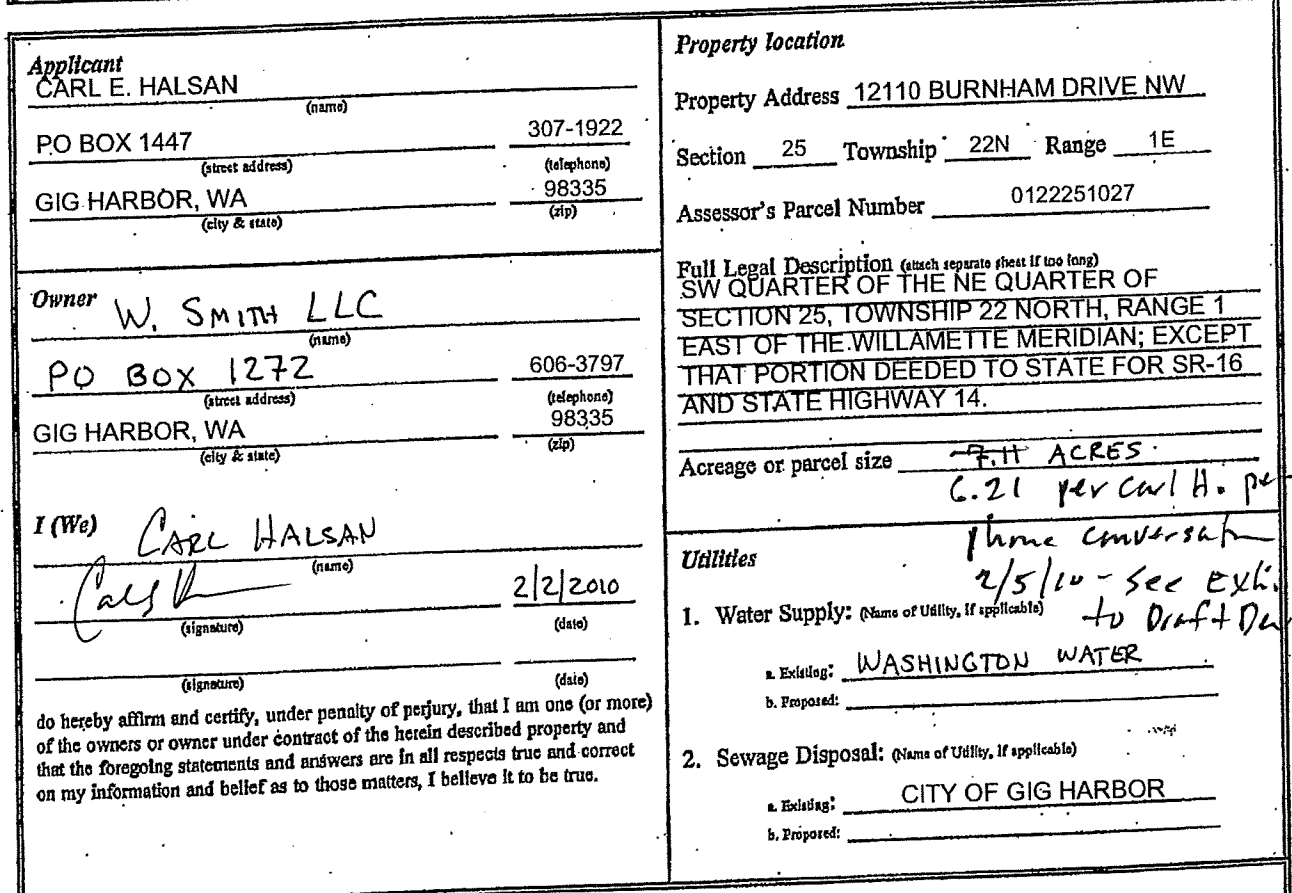 Applicant
CARL E. HALSAN
(name)
PO BOX 1447 307-1922
(street address) (telephone)
GIG HARBOR, WA 98335
(city & state) (zip)
Owner W. SMITH LLC
(name)
PO BOX 1272 606-3797
(street address) (telephone)
GIG HARBOR, WA 98335
(city & state) (zip)
I (We) CARL HALSAN
(name)
2/2/2010
(signature) (date)
(signature) (date)
do hereby affirm and certify, under penalty of perjury, that I am one (or more)
of the owners or owner under contract of the herein described property and
that the foregoing statements and answers are in all respects true and correct
on my information and belief as to those matters, I believe it to be true.
Property location
Property Address 12110 BURNHAM DRIVE NW
Section 25 Township 22N Range 1E
Assessor's Parcel Number 0122251027
Full Legal Description (attach separate sheet if too long)
SW QUARTER OF THE NE QUARTER OF
SECTION 25, TOWNSHIP 22 NORTH, RANGE 1
EAST OF THE WILLAMETTE MERIDIAN; EXCEPT
THAT PORTION DEEDED TO STATE FOR SR-16
AND STATE HIGHWAY 14.
Acreage or parcel size 7.11 ACRES
6.21 per Carl H. per
phone conversation
2/5/10 - See Exh.
to Draft
Utilities
1. Water Supply: (Name of Utility, if applicable)
a. Existing: WASHINGTON WATER
b. Proposed:
2. Sewage Disposal: (Name of Utility, if applicable)
a. Existing: CITY OF GIG HARBOR
b. Proposed: